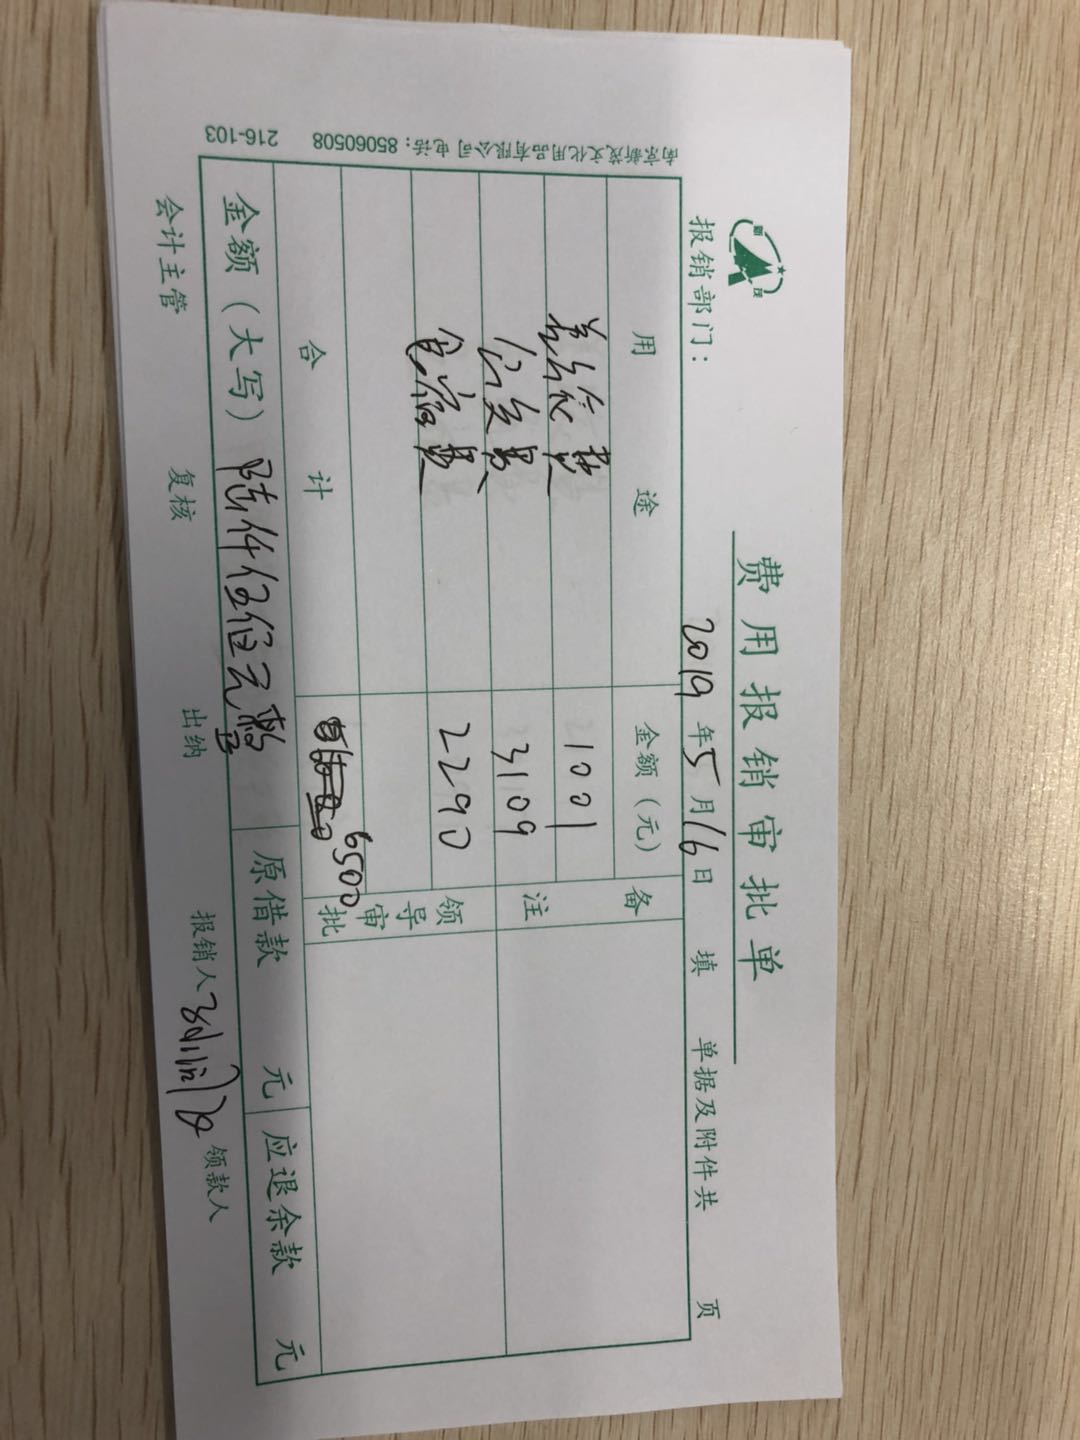 新茂
费用报销审批单
报销部门: 2019年5月16日 填 单据及附件共 页
用途 金额(元) 备注
差旅费 1001
公交费 3109
食宿费 2290
领导审批
合计 6500
金额(大写) 陆仟伍佰元整 原借款 元 应退余款 元
会计主管 复核 出纳 报销人 领款人
南京新茂文化用品有限公司 电话:85060508 216-103